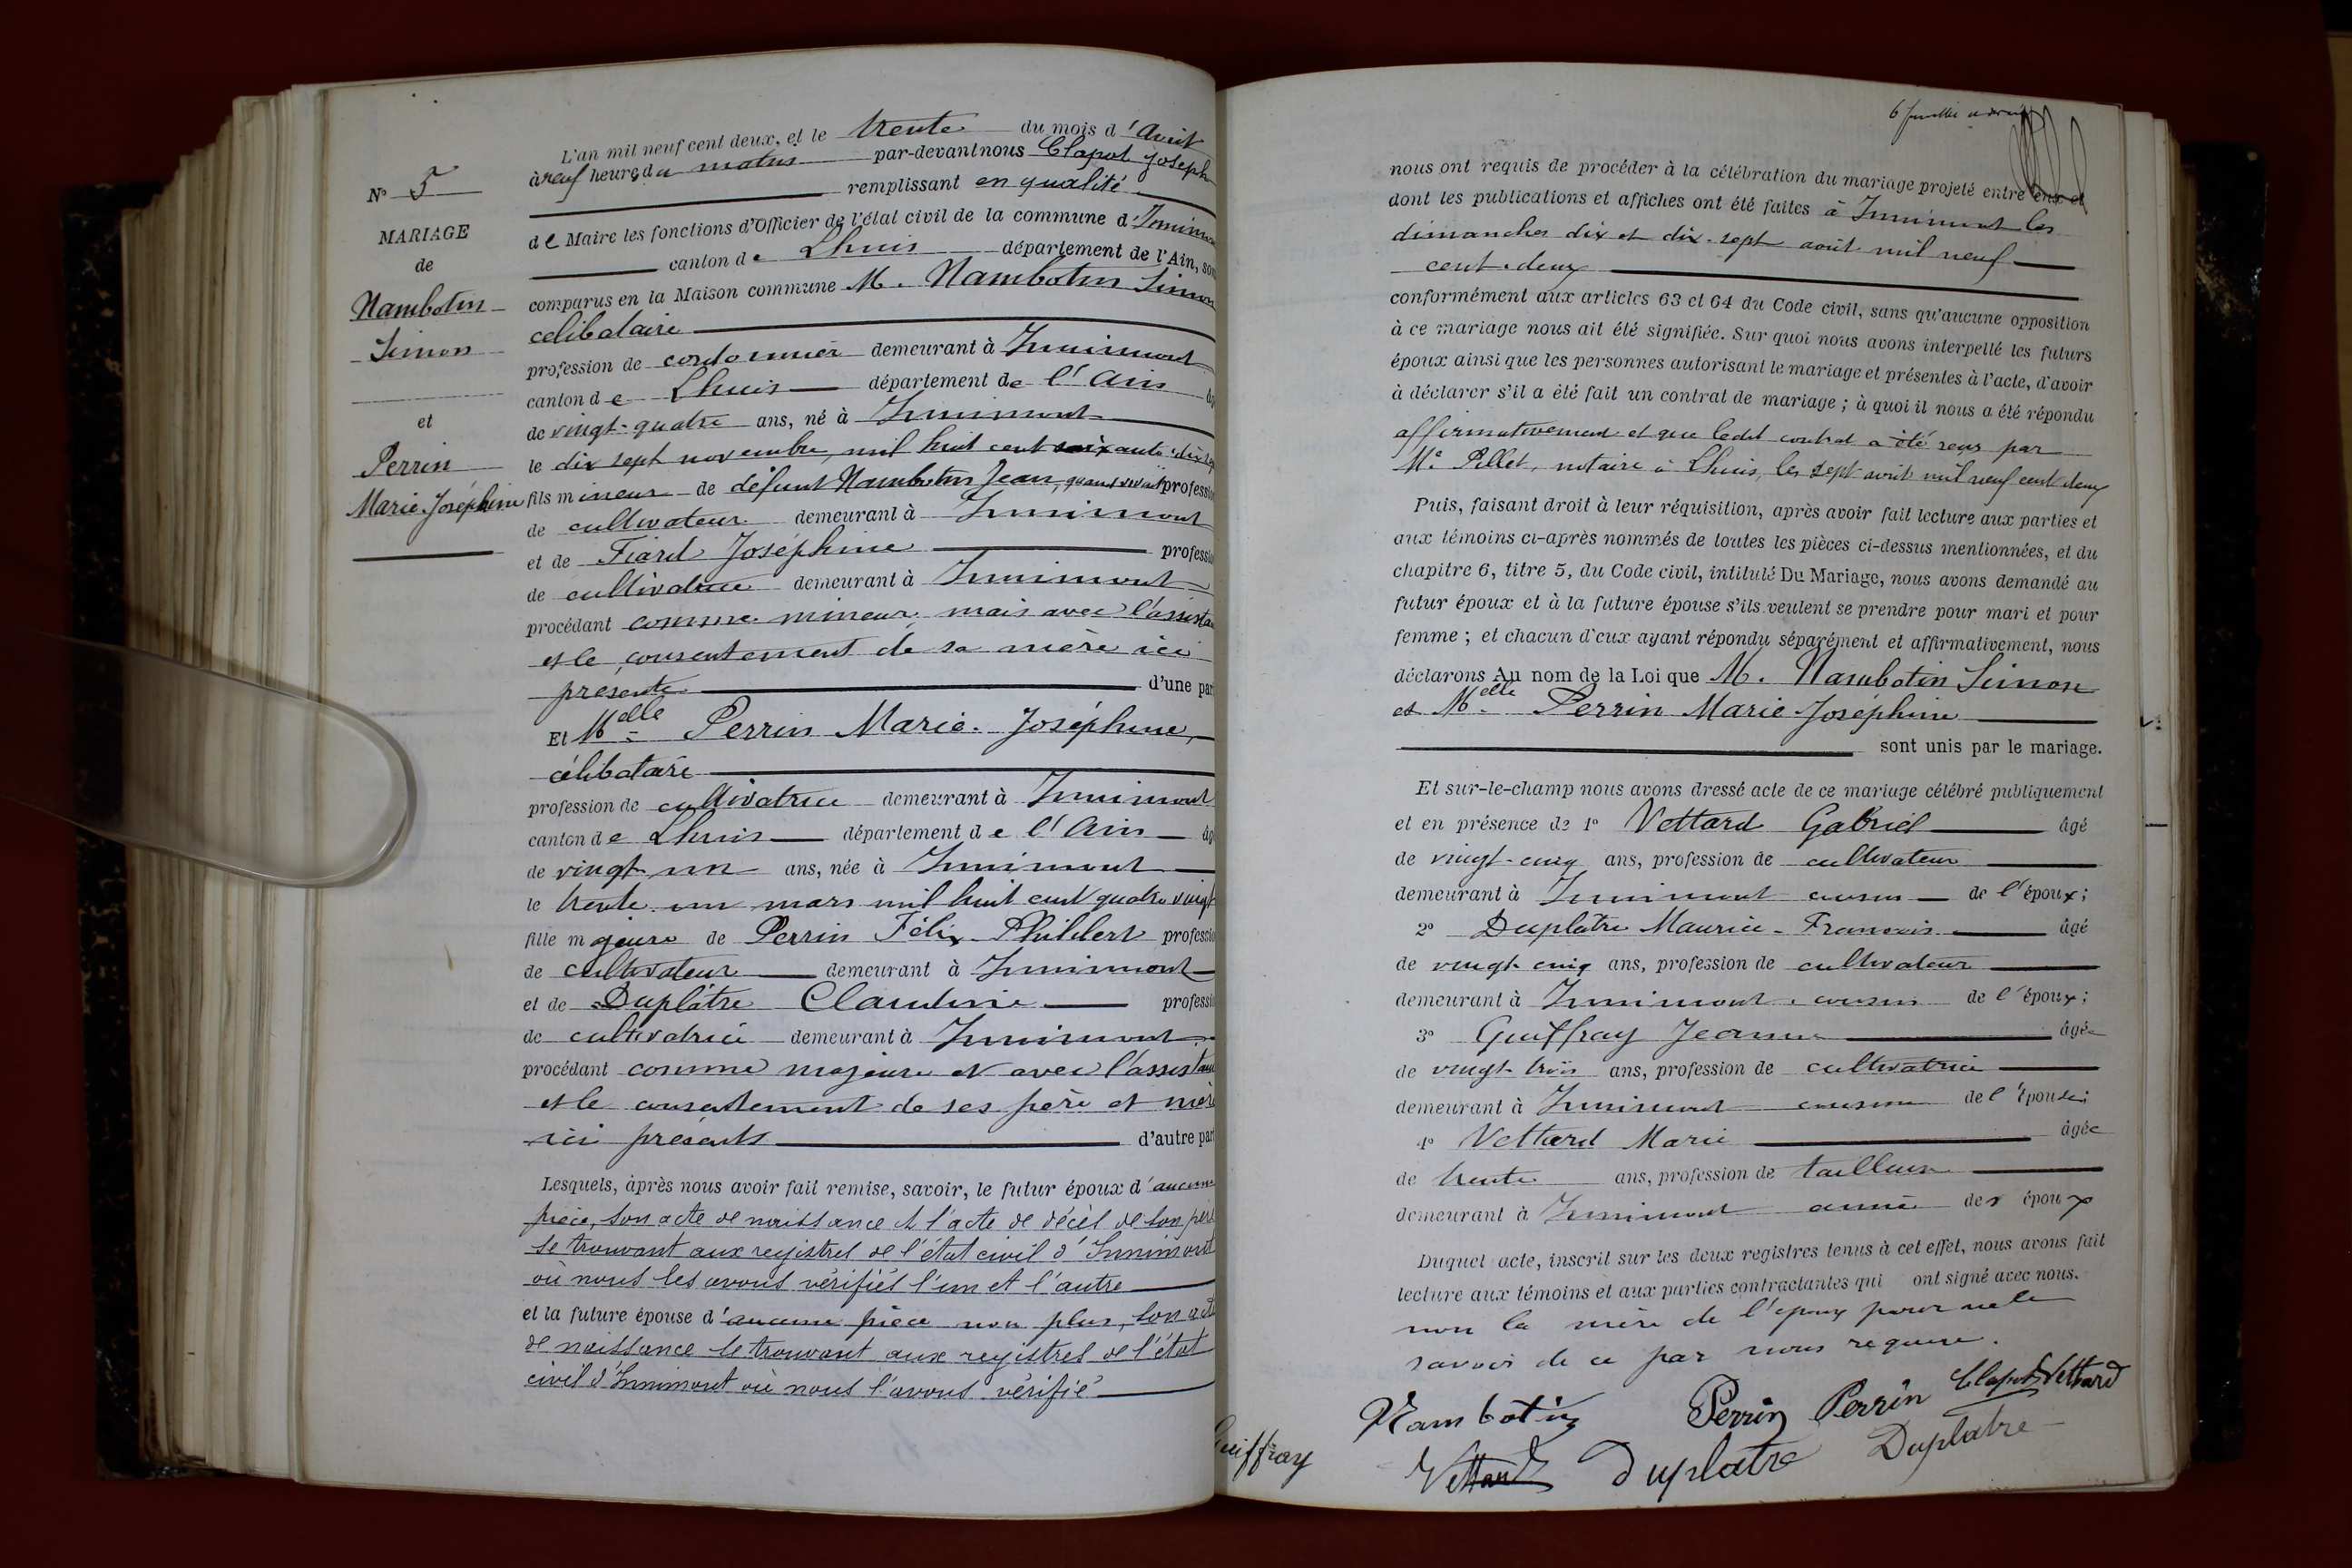 N° 5
MARIAGE
de
Nambotin
Simon
et
Perrin
Marie-Joséphine
L'an mil neuf cent deux, et le trente du mois d'Août
à neuf heures du matin par-devant nous Clapot Joseph
remplissant en qualité
de Maire les fonctions d'Officier de l'état civil de la commune d'Innimon
canton de Lhuis département de l'Ain, son
comparus en la Maison commune M. Nambotin Simon
célibataire
profession de cordonnier demeurant à Innimont
canton de Lhuis département de l'Ain âg
de vingt-quatre ans, né à Innimont
le dix sept novembre, mil huit cent soixante-dix sep
fils mineur de défunt Nambotin Jean, quand vivait profession
de cultivateur demeurant à Innimont
et de Fiard Joséphine profession
de cultivatrice demeurant à Innimont
procédant comme mineur, mais avec l'assistan
et le consentement de sa mère ici
présente d'une par
Et Melle Perrin Marie-Joséphine,
célibataire
profession de cultivatrice demeurant à Innimont
canton de Lhuis département de l'Ain âg
de vingt-un ans, née à Innimont
le trente-un mars mil huit cent quatre vingt
fille majeure de Perrin Félix-Philibert professio
de cultivateur demeurant à Innimont
et de Duplâtre Claudine professio
de cultivatrice demeurant à Innimont
procédant comme majeure et avec l'assistan
et le consentement de ses père et mère
ici présents d'autre part
Lesquels, après nous avoir fait remise, savoir, le futur époux d'aucune
pièce, son acte de naissance et l'acte de décès de son père
se trouvant aux registres de l'état civil d'Innimont
où nous les avons vérifiés l'un et l'autre
et la future épouse d'aucune pièce non plus, son acte
de naissance se trouvant aux registres de l'état
civil d'Innimont où nous l'avons vérifié
nous ont requis de procéder à la célébration du mariage projeté entre eux et
dont les publications et affiches ont été faites à Innimont les
dimanches dix et dix-sept août mil neuf
cent-deux
conformément aux articles 63 et 64 du Code civil, sans qu'aucune opposition
à ce mariage nous ait été signifiée. Sur quoi nous avons interpellé les futurs
époux ainsi que les personnes autorisant le mariage et présentes à l'acte, d'avoir
à déclarer s'il a été fait un contrat de mariage ; à quoi il nous a été répondu
affirmativement et que ledit contrat a été reçu par
Me Pellet, notaire à Lhuis, les sept août mil neuf cent deux
Puis, faisant droit à leur réquisition, après avoir fait lecture aux parties et
aux témoins ci-après nommés de toutes les pièces ci-dessus mentionnées, et du
chapitre 6, titre 5, du Code civil, intitulé Du Mariage, nous avons demandé au
futur époux et à la future épouse s'ils veulent se prendre pour mari et pour
femme ; et chacun d'eux ayant répondu séparément et affirmativement, nous
déclarons Au nom de la Loi que M. Nambotin Simon
et Melle Perrin Marie-Joséphine
sont unis par le mariage.
Et sur-le-champ nous avons dressé acte de ce mariage célébré publiquement
et en présence de 1° Vettard Gabriel âgé
de vingt-cinq ans, profession de cultivateur
demeurant à Innimont cousin de l'époux ;
2° Duplâtre Maurice-François âgé
de vingt-cinq ans, profession de cultivateur
demeurant à Innimont, cousin de l'époux ;
3° Guiffray Jeanne âgée
de vingt-trois ans, profession de cultivatrice
demeurant à Innimont cousine de l'épouse ;
4° Vettard Marie âgée
de trente ans, profession de
demeurant à Innimont amie des époux
Duquel acte, inscrit sur les deux registres tenus à cet effet, nous avons fait
lecture aux témoins et aux parties contractantes qui ont signé avec nous.
non la mère de l'époux pour ne le
savoir de ce par nous requise.
Nambotin Perrin Perrin Clapot Vettard
Guiffray Vettard Duplatre Duplatre